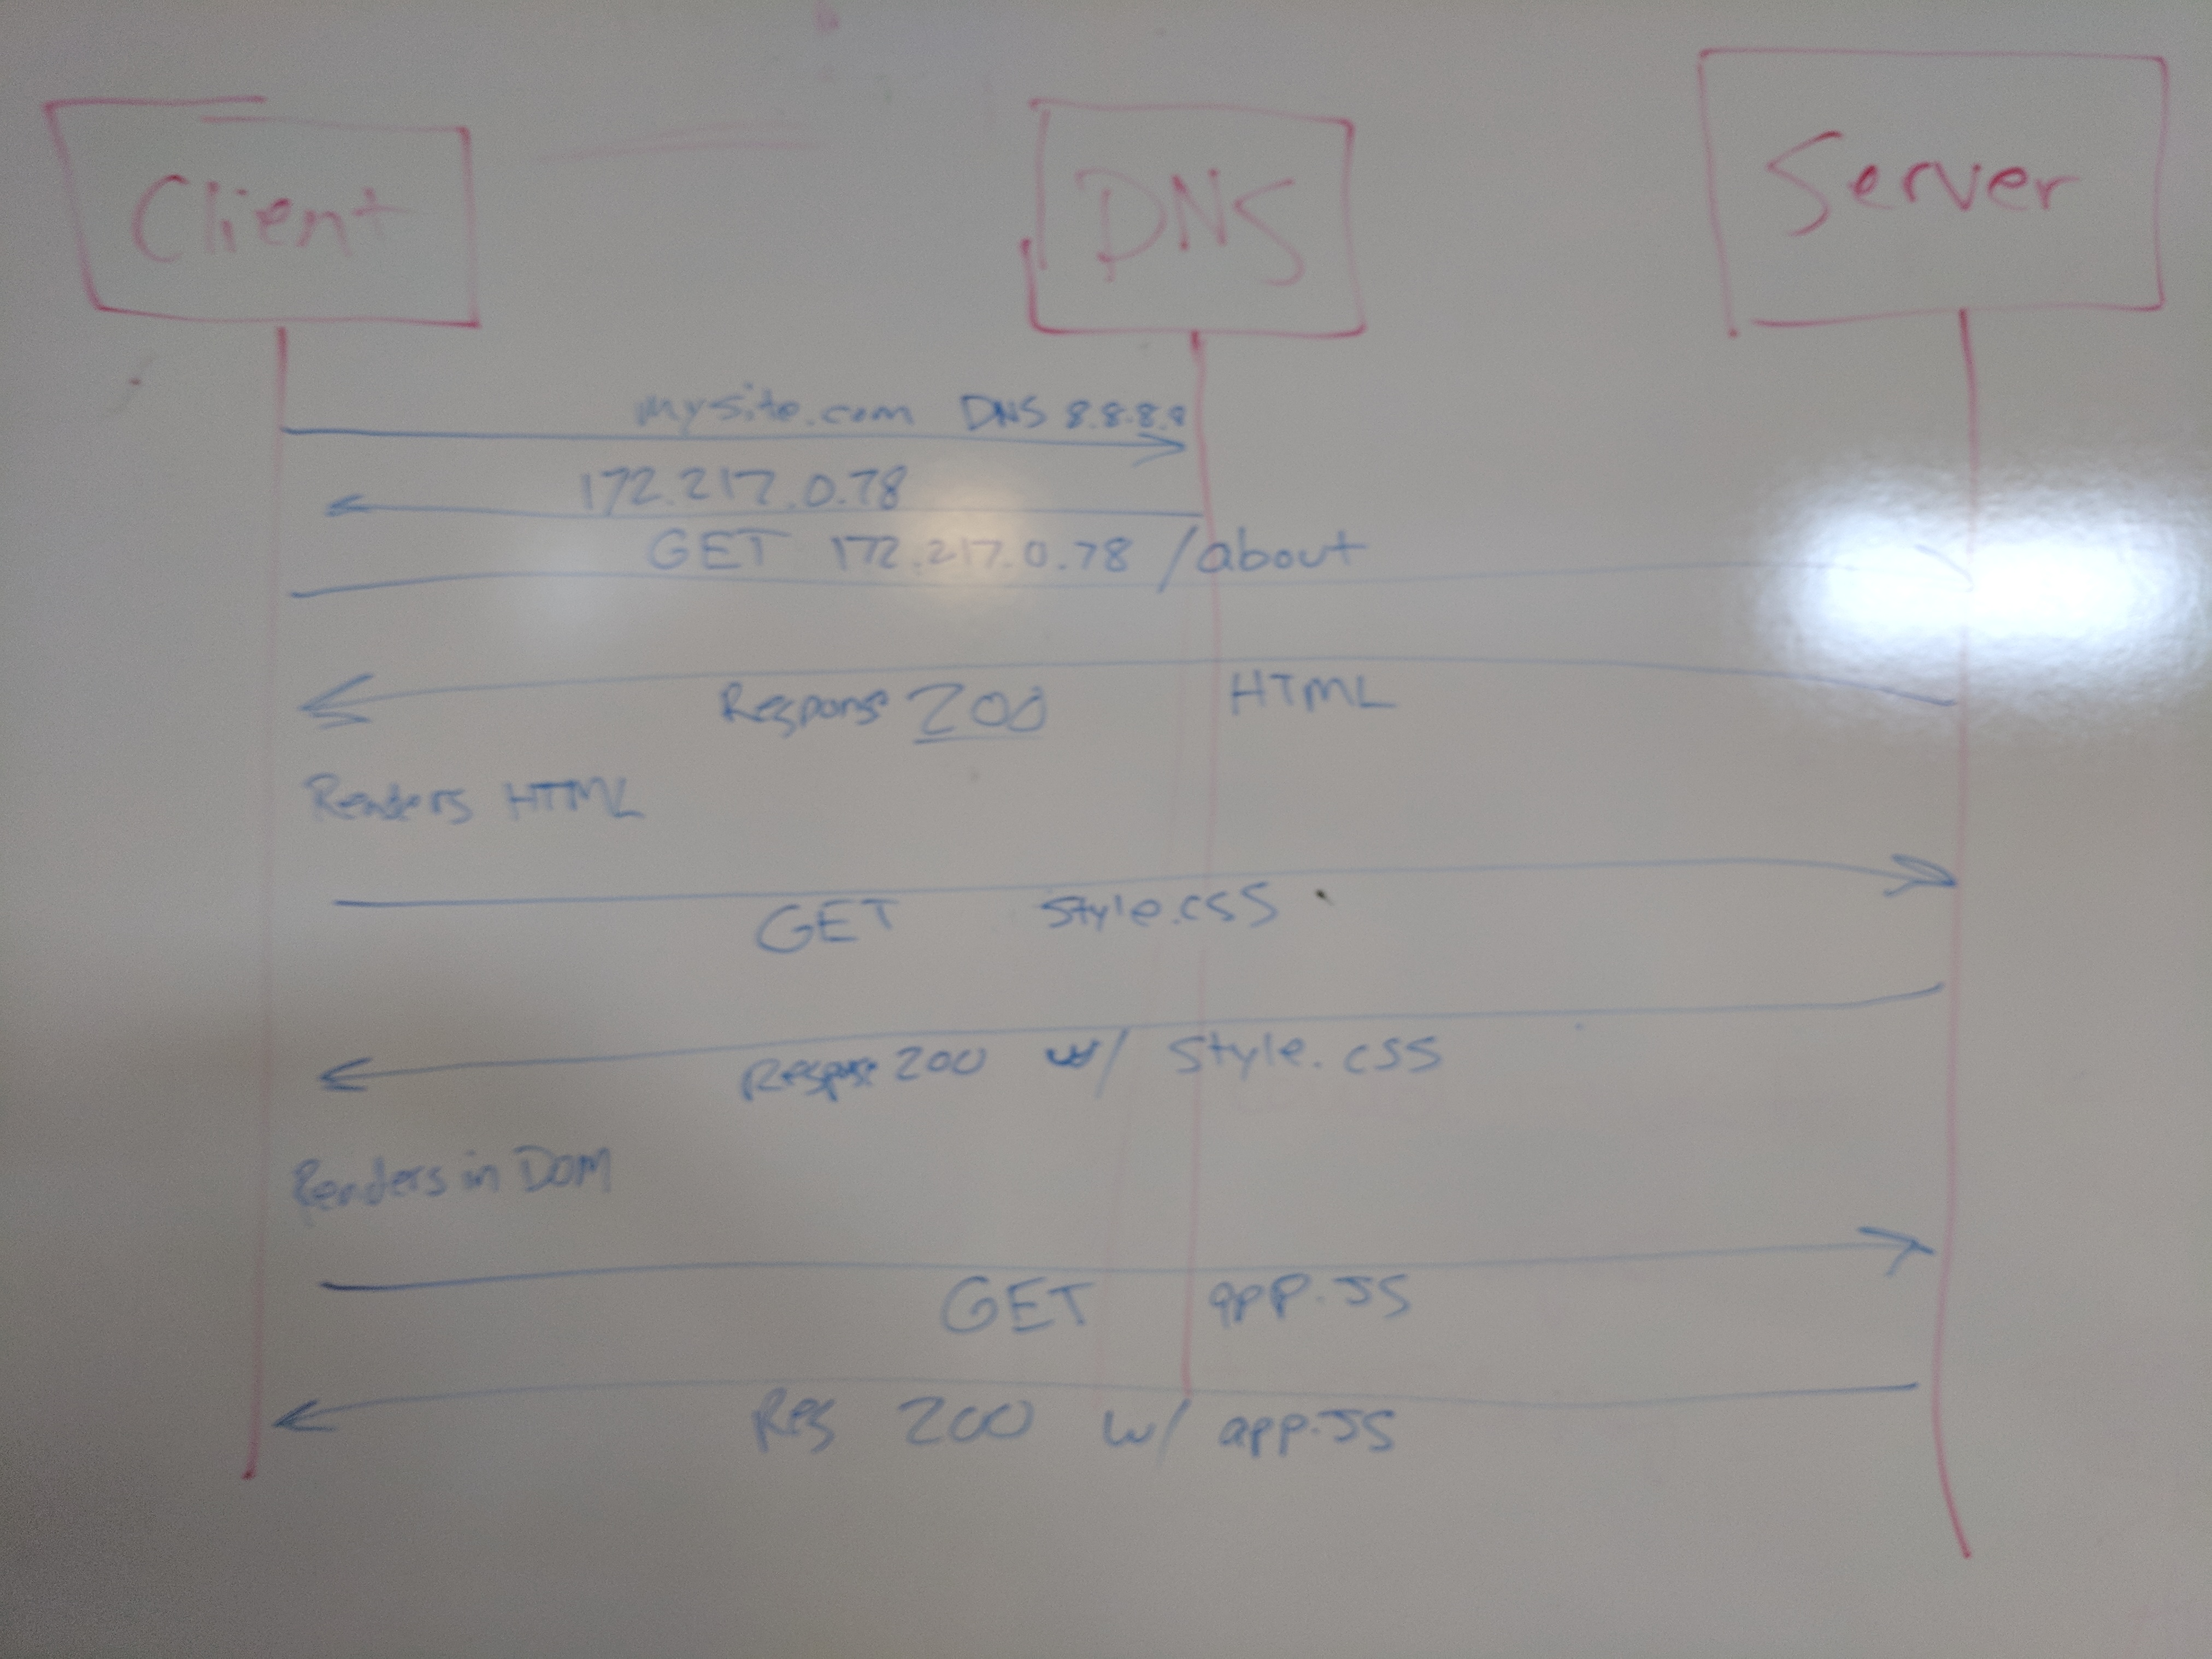 Client DNS Server
mysite.com DNS 8.8.8.8
172.217.0.78
GET 172.217.0.78 /about
Response 200 HTML
Renders HTML
GET Style.css
Response 200 w/ Style.css
Renders in DOM
GET app.JS
Res 200 w/ app.JS